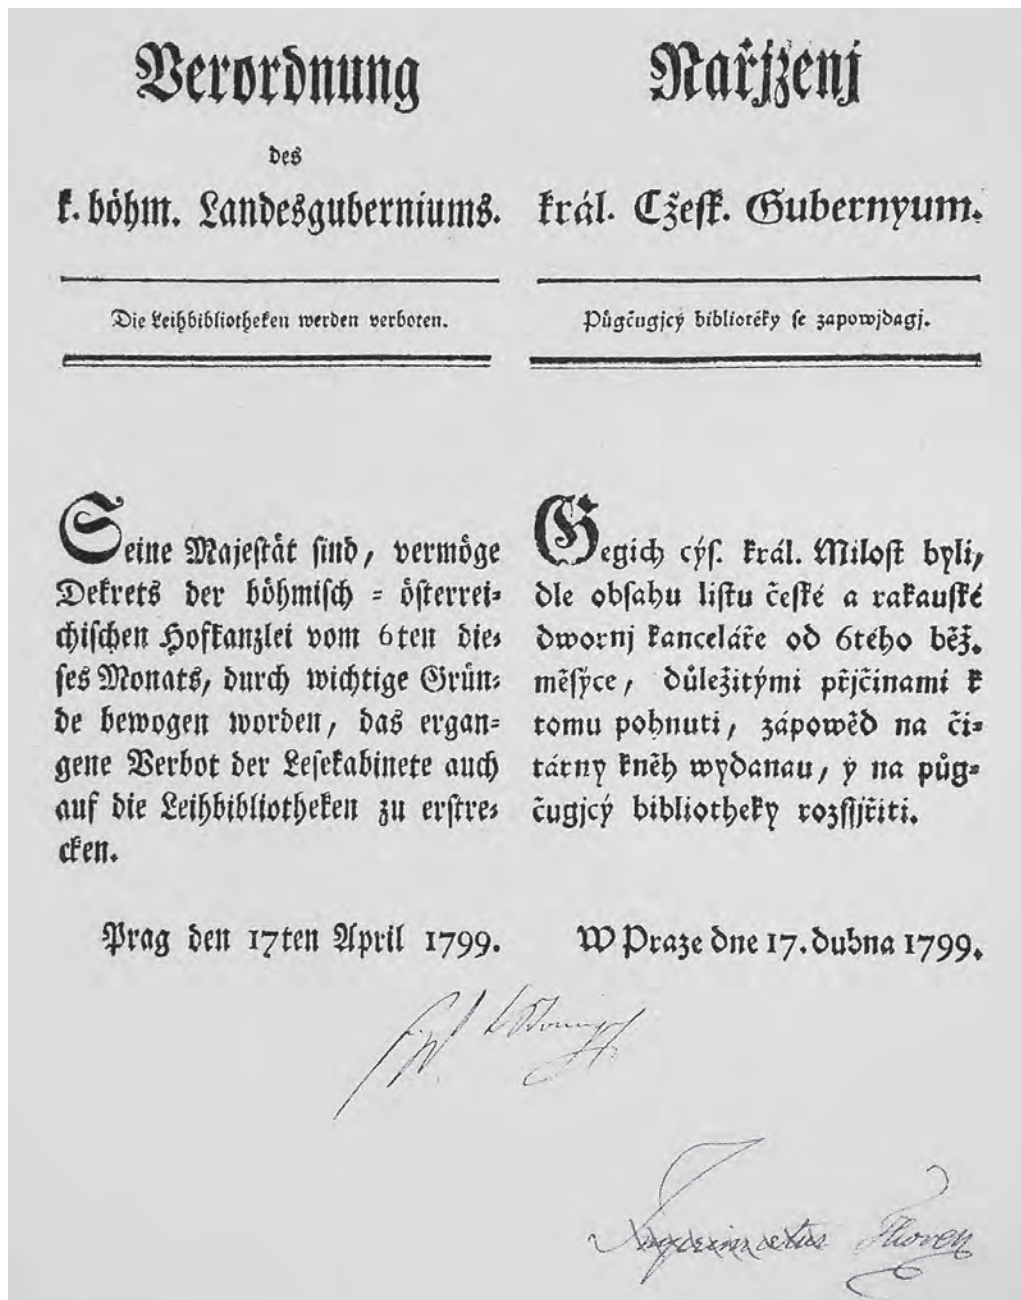 Verordnung
des
k. böhm. Landesguberniums.
Die Leihbibliotheken werden verboten.
Seine Majestät sind, vermöge
Dekrets der böhmisch - österrei-
chischen Hofkanzlei vom 6ten die-
ses Monats, durch wichtige Grün-
de bewogen worden, das ergan-
gene Verbot der Lesekabinete auch
auf die Leihbibliotheken zu erstre-
cken.
Prag den 17ten April 1799.
Nařjzenj
král. Cžesk. Gubernyum.
Půgčugjcý bibliotéky se zapowjdagj.
Gegich cýs. král. Milost byli,
dle obsahu listu české a rakauské
dwornj kanceláře od 6tého běž.
měsýce, důležitými přjčinami k
tomu pohnuti, zápowěd na či-
tárny kněh wydanau, y na půg-
čugjcý bibliotheky rozssjřiti.
W Praze dne 17. dubna 1799.